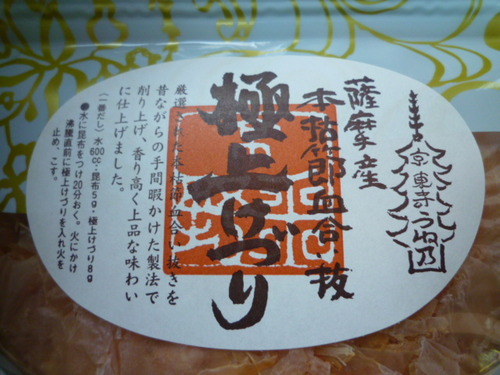 京東寺うね乃
薩摩産
本枯節血合い抜
極上けづり
厳選された本枯節血合い抜きを
昔ながらの手間暇かけた製法で
削り上げ、香り高く上品な味わい
に仕上げました。
(一番だし) 水600cc・昆布5g・極上けづり8g
●水に昆布をつけ20分おく。火にかけ
沸騰直前に極上けづりを入れ火を
止め、こす。